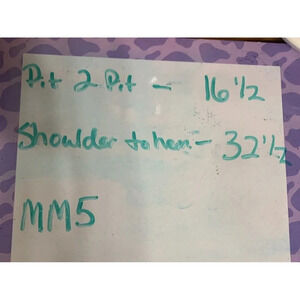 Pit 2 Pit - 16 1/2
Shoulder to hem - 32 1/2
MM5